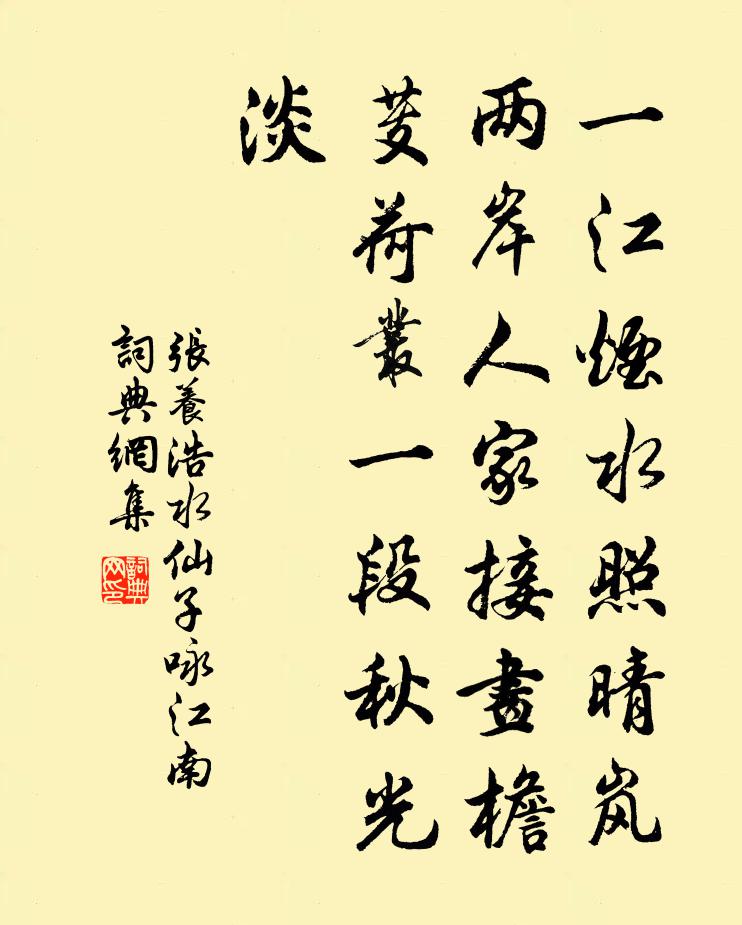 一江煙水照晴岚
两岸人家接畫檐
芰荷叢一段秋光
淡
張養浩水仙子咏江南
詞典網集
詞典網印